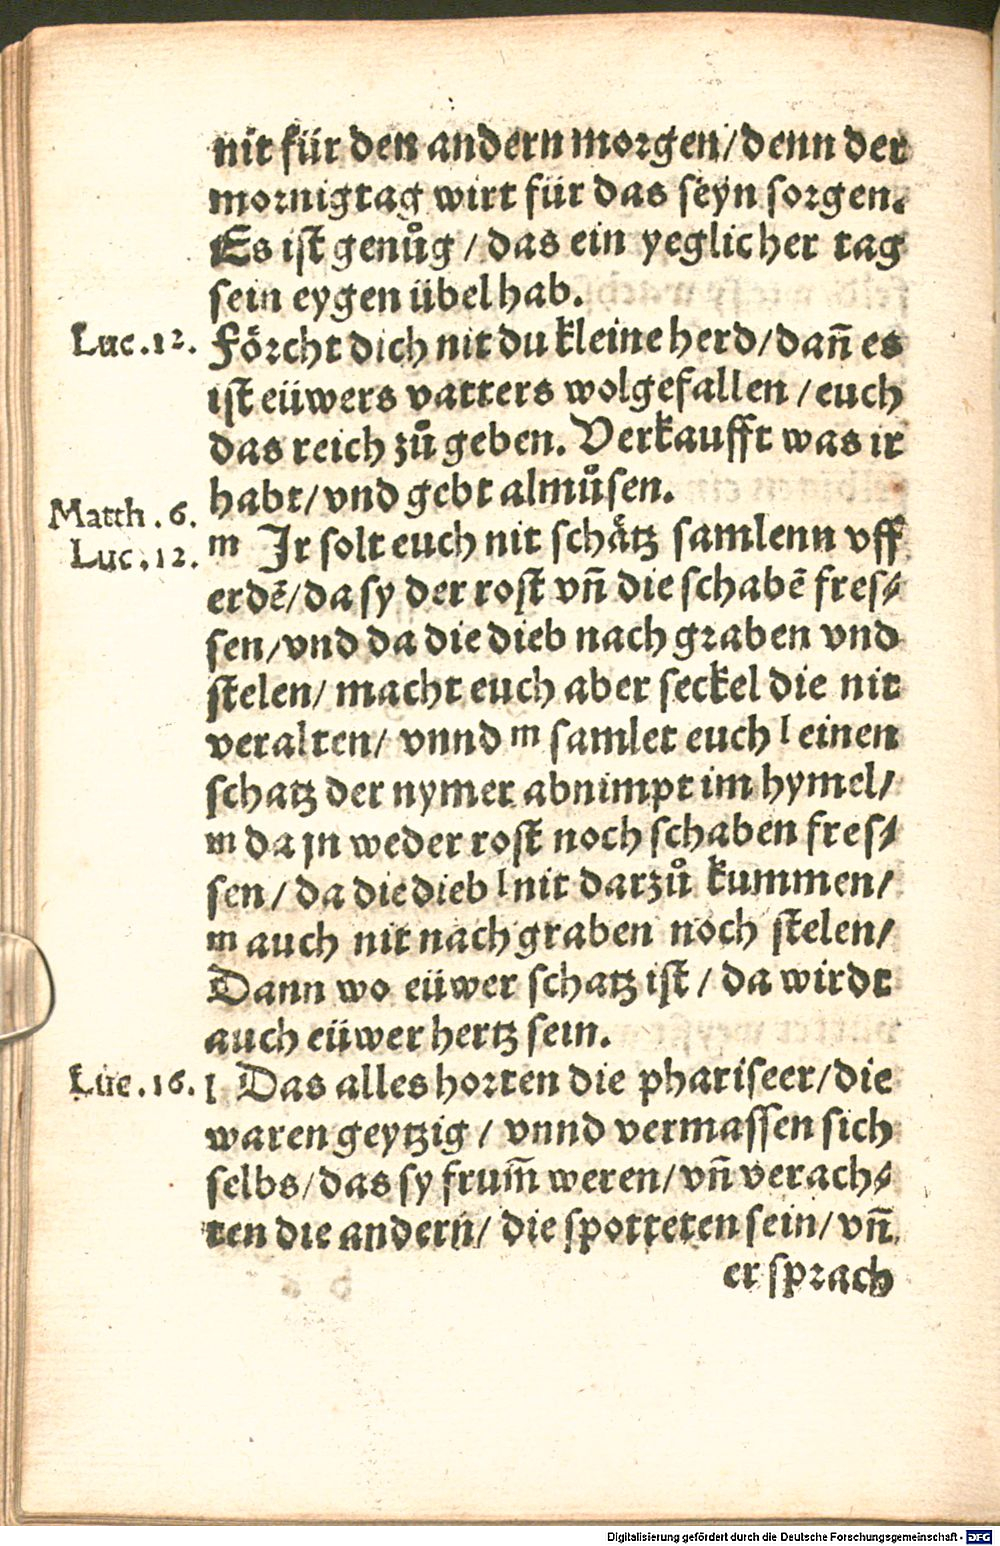 nit für den andern morgen/denn der
mornigtag wirt für das seyn sorgen.
Es ist genůg / das ein yeglicher tag
sein eygen übel hab.
Luc.12. Förcht dich nit du kleine herd/dañ es
ist eüwers vatters wolgefallen /euch
das reich zů geben. Verkaufft was ir
habt/vnd gebt almůsen.
Matth.6.
Luc.12. m Jr solt euch nit schätz samlenn vff
erdē/da sy der rost vñ die schabē fres⸗
sen/vnd da die dieb nach graben vnd
stelen/ macht euch aber seckel die nit
veralten/ vnnd m samlet euch l einen
schatz der nymer abnimpt im hymel/
m da jn weder rost noch schaben fres⸗
sen/ da die dieb l nit darzů kummen/
m auch nit nach graben noch stelen/
Dann wo eüwer schatz ist/ da wirdt
auch eüwer hertz sein.
Luc.16. l Das alles horten die phariseer/die
waren geytzig / vnnd vermassen sich
selbs/das sy frum̃ weren/vñ verach⸗
ten die andern/ die spotteten sein/vñ
er sprach
Digitalisierung gefördert durch die Deutsche Forschungsgemeinschaft - DFG